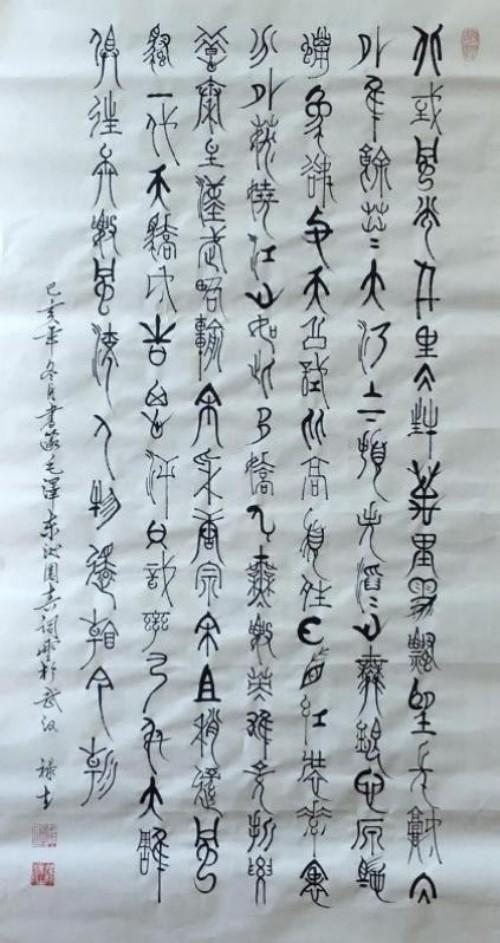 北國風光千里冰封萬里雪飄望長城內
外惟餘莽〻大河上下頓失滔〻山舞銀蛇原馳
蠟象欲與天公試比高須晴日看紅裝素裹
分外妖嬈江山如此多嬌引無數英雄競折腰
惜秦皇漢武略輸文采唐宗宋祖稍遜風
騷一代天驕成吉思汗只識彎弓射大雕
俱往矣數風流人物還看今朝
己亥年冬月書錄毛澤東沁園春詞雪於武汉